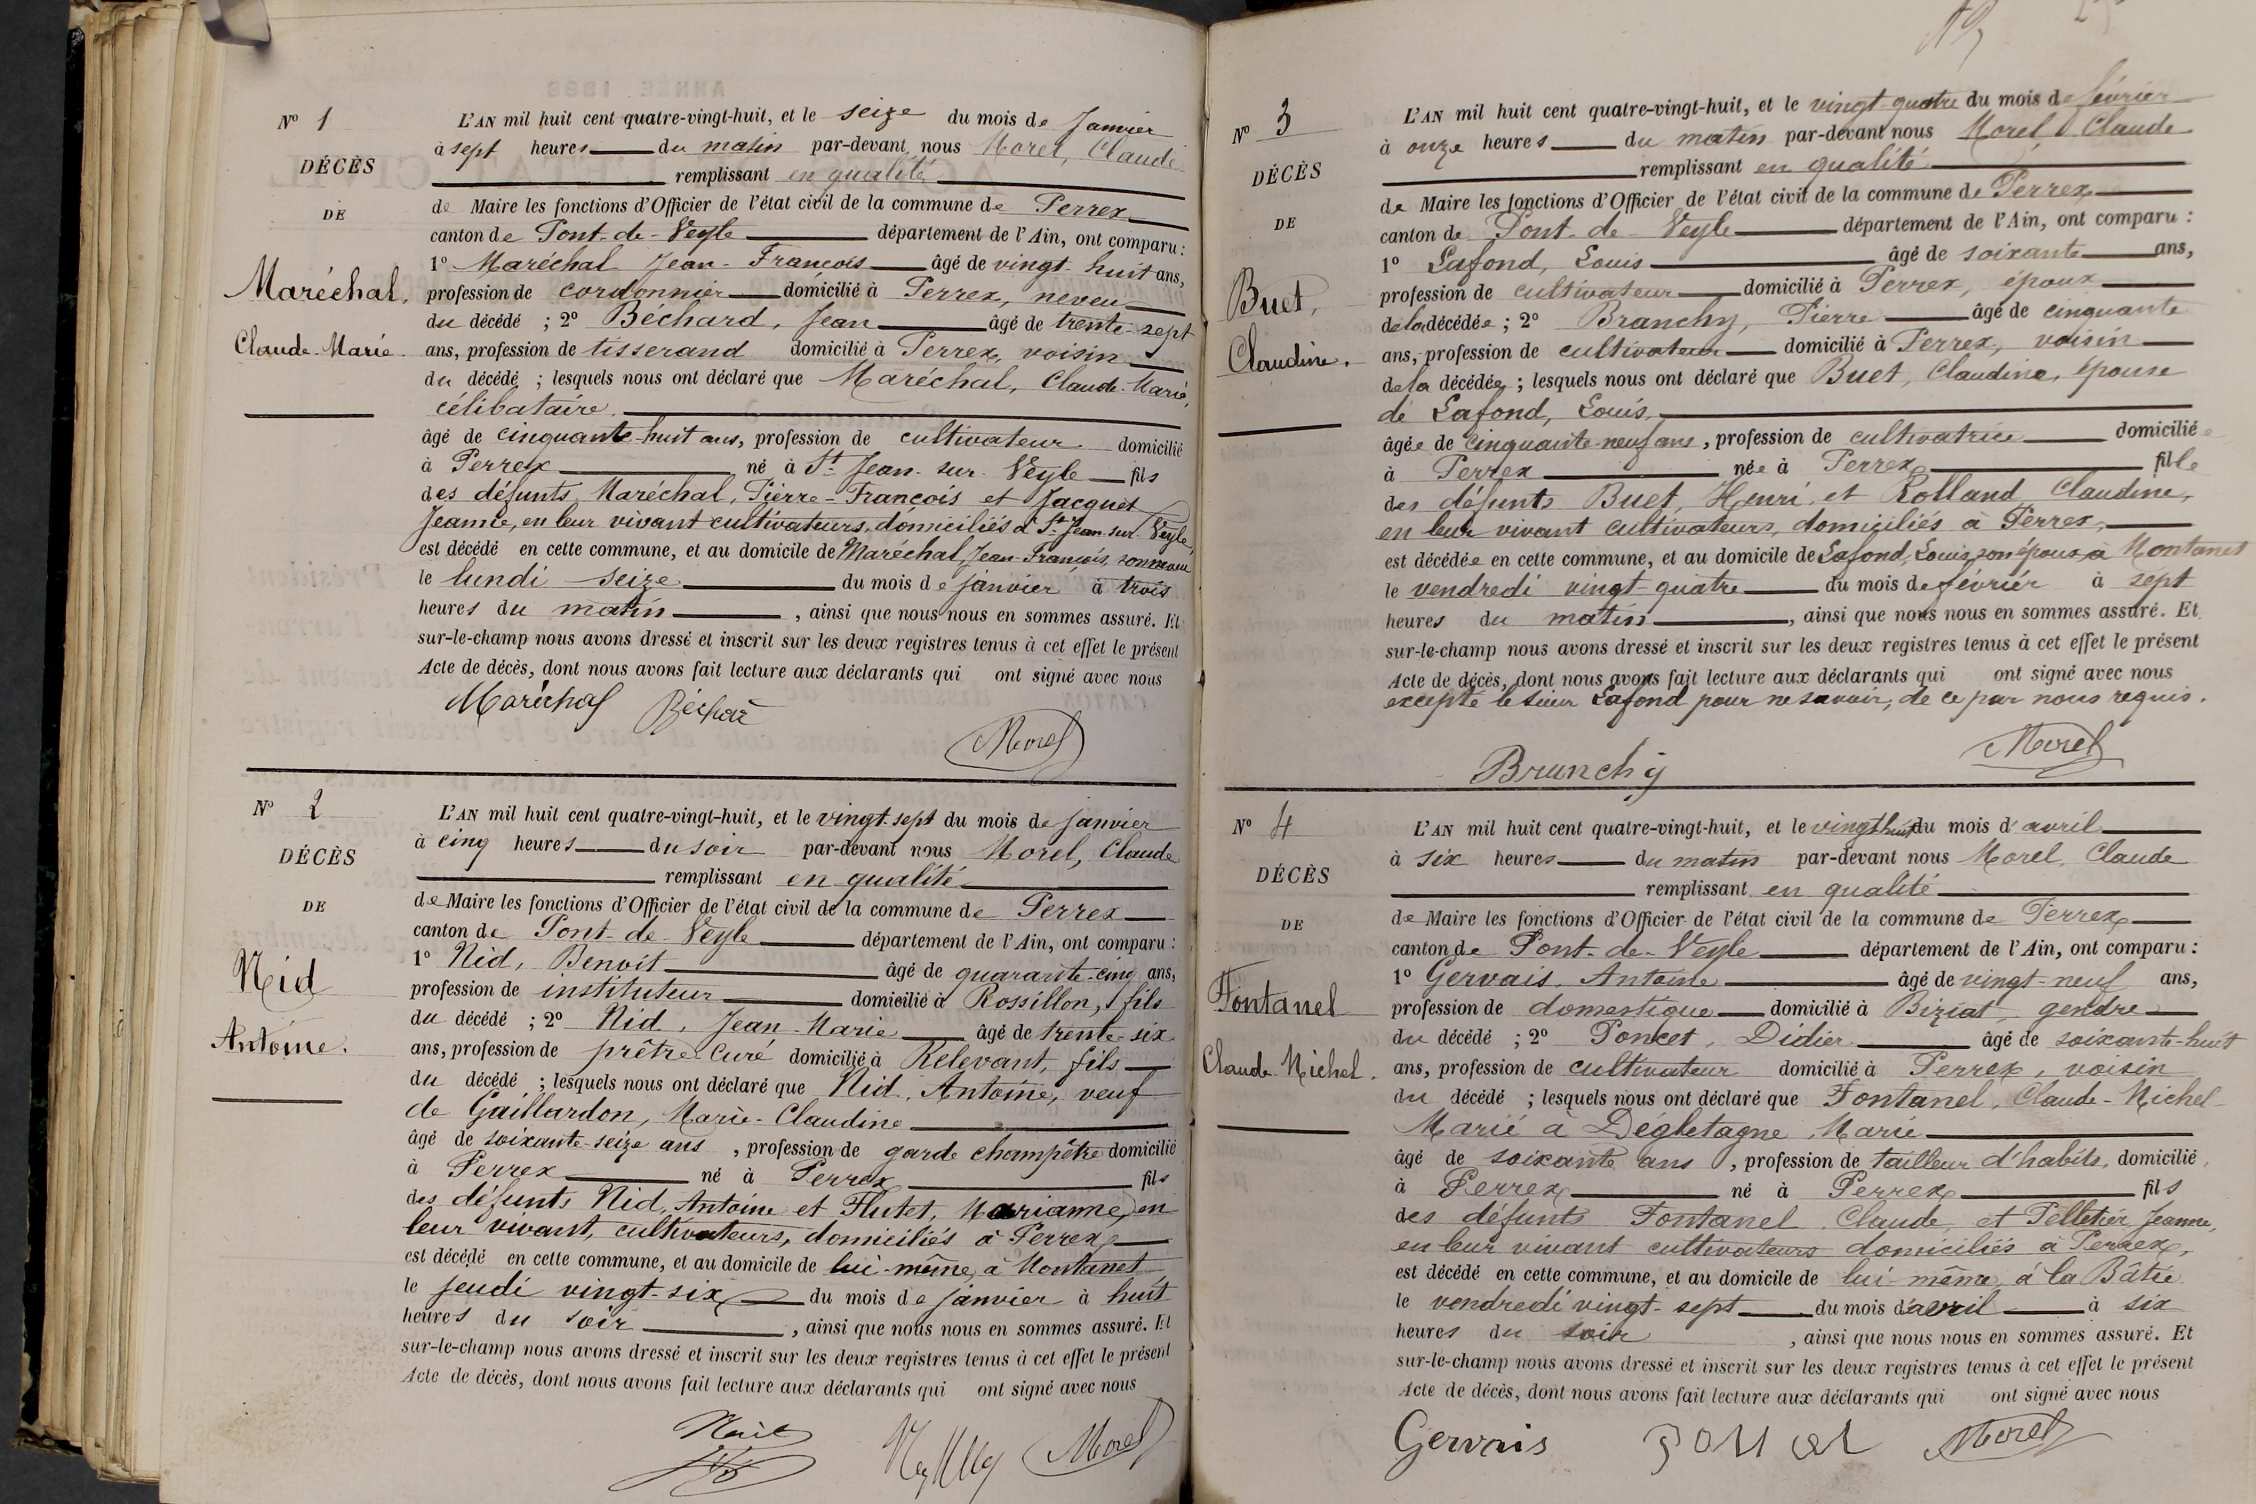 Nº 1
DÉCÈS
DE
Maréchal,
Claude-Marie.
L'AN mil huit cent quatre-vingt-huit, et le seize du mois de Janvier
à sept heures du matin par-devant nous Morel, Claude
remplissant en qualité
de Maire les fonctions d'Officier de l'état civil de la commune de Perrex
canton de Pont-de-Veyle département de l'Ain, ont comparu :
1º Maréchal Jean-François âgé de vingt-huit ans,
profession de cordonnier domicilié à Perrex, neveu
du décédé ; 2º Bechard, Jean âgé de trente-sept
ans, profession de tisserand domicilié à Perrex, voisin
du décédé ; lesquels nous ont déclaré que Maréchal, Claude-Marie,
célibataire
âgé de cinquante-huit ans, profession de cultivateur domicilié
à Perrex né à St Jean-sur-Veyle fils
des défunts Maréchal, Pierre-François et Jacquet
Jeanne, en leur vivant cultivateurs, domiciliés à St-Jean-sur-Veyle,
est décédé en cette commune, et au domicile de Maréchal, Jean-François, son neveu
le lundi seize du mois de janvier à trois
heures du matin, ainsi que nous nous en sommes assuré. Et
sur-le-champ nous avons dressé et inscrit sur les deux registres tenus à cet effet le présent
Acte de décès, dont nous avons fait lecture aux déclarants qui ont signé avec nous
Maréchal Béchard
Morel
Nº 2
DÉCÈS
DE
Nid
Antoine.
L'AN mil huit cent quatre-vingt-huit, et le vingt-sept du mois de janvier
à cinq heures du soir par-devant nous Morel, Claude
remplissant en qualité
de Maire les fonctions d'Officier de l'état civil de la commune de Perrex
canton de Pont-de-Veyle département de l'Ain, ont comparu :
1º Nid, Benoit âgé de quarante-cinq ans,
profession de instituteur domicilié à Rossillon, fils
du décédé ; 2º Nid, Jean-Marie âgé de trente-six
ans, profession de prêtre-curé domicilié à Relevant, fils
du décédé ; lesquels nous ont déclaré que Nid, Antoine, veuf
de Gaillardon, Marie-Claudine
âgé de soixante-seize ans, profession de garde champêtre domicilié
à Perrex né à Perrex fils
des défunts Nid, Antoine et Flutet, Marianne, en
leur vivant, cultivateurs, domiciliés à Perrex,
est décédé en cette commune, et au domicile de lui-même, à Montanet
le jeudi vingt-six du mois de janvier à huit
heures du soir, ainsi que nous nous en sommes assuré. Et
sur-le-champ nous avons dressé et inscrit sur les deux registres tenus à cet effet le présent
Acte de décès, dont nous avons fait lecture aux déclarants qui ont signé avec nous
Morel
Nº 3
DÉCÈS
DE
Buet,
Claudine.
L'AN mil huit cent quatre-vingt-huit, et le vingt-quatre du mois de février
à onze heures du matin par-devant nous Morel, Claude
remplissant en qualité
de Maire les fonctions d'Officier de l'état civil de la commune de Perrex
canton de Pont-de-Veyle département de l'Ain, ont comparu :
1º Lafond, Louis âgé de soixante ans,
profession de cultivateur domicilié à Perrex, époux
de la décédée ; 2º Branchy, Pierre âgé de cinquante
ans, profession de cultivateur domicilié à Perrex, voisin
de la décédée ; lesquels nous ont déclaré que Buet, Claudine, épouse
de Lafond, Louis,
âgée de cinquante-neuf ans, profession de cultivatrice domiciliée
à Perrex née à Perrex fille
des défunts Buet, Henri et Rolland Claudine,
en leur vivant cultivateurs, domiciliés à Perrex,
est décédée en cette commune, et au domicile de Lafond, Louis, son époux, à Montanet
le vendredi vingt-quatre du mois de février à sept
heures du matin, ainsi que nous nous en sommes assuré. Et
sur-le-champ nous avons dressé et inscrit sur les deux registres tenus à cet effet le présent
Acte de décès, dont nous avons fait lecture aux déclarants qui ont signé avec nous
excepté le sieur Lafond pour ne savoir, de ce par nous requis.
Morel
Brunchy
Nº 4
DÉCÈS
DE
Fontanel
Claude-Michel.
L'AN mil huit cent quatre-vingt-huit, et le vingt huit du mois d'avril
à six heures du matin par-devant nous Morel, Claude
remplissant en qualité
de Maire les fonctions d'Officier de l'état civil de la commune de Perrex
canton de Pont-de-Veyle département de l'Ain, ont comparu :
1º Gervais, Antoine âgé de vingt-neuf ans,
profession de domestique domicilié à Biziat, gendre
du décédé ; 2º Poncet, Didier âgé de soixante-huit
ans, profession de cultivateur domicilié à Perrex, voisin
du décédé ; lesquels nous ont déclaré que Fontanel, Claude-Michel
Marié à Dégletagne, Marie
âgé de soixante ans, profession de tailleur d'habits, domicilié
à Perrex né à Perrex fils
des défunts Fontanel Claude, et Pelletier Jeanne,
en leur vivant cultivateurs domiciliés à Perrex,
est décédé en cette commune, et au domicile de lui-même, à la Bâtie
le vendredi vingt-sept du mois d'avril à six
heures du soir, ainsi que nous nous en sommes assuré. Et
sur-le-champ nous avons dressé et inscrit sur les deux registres tenus à cet effet le présent
Acte de décès, dont nous avons fait lecture aux déclarants qui ont signé avec nous
Gervais Poncet Morel